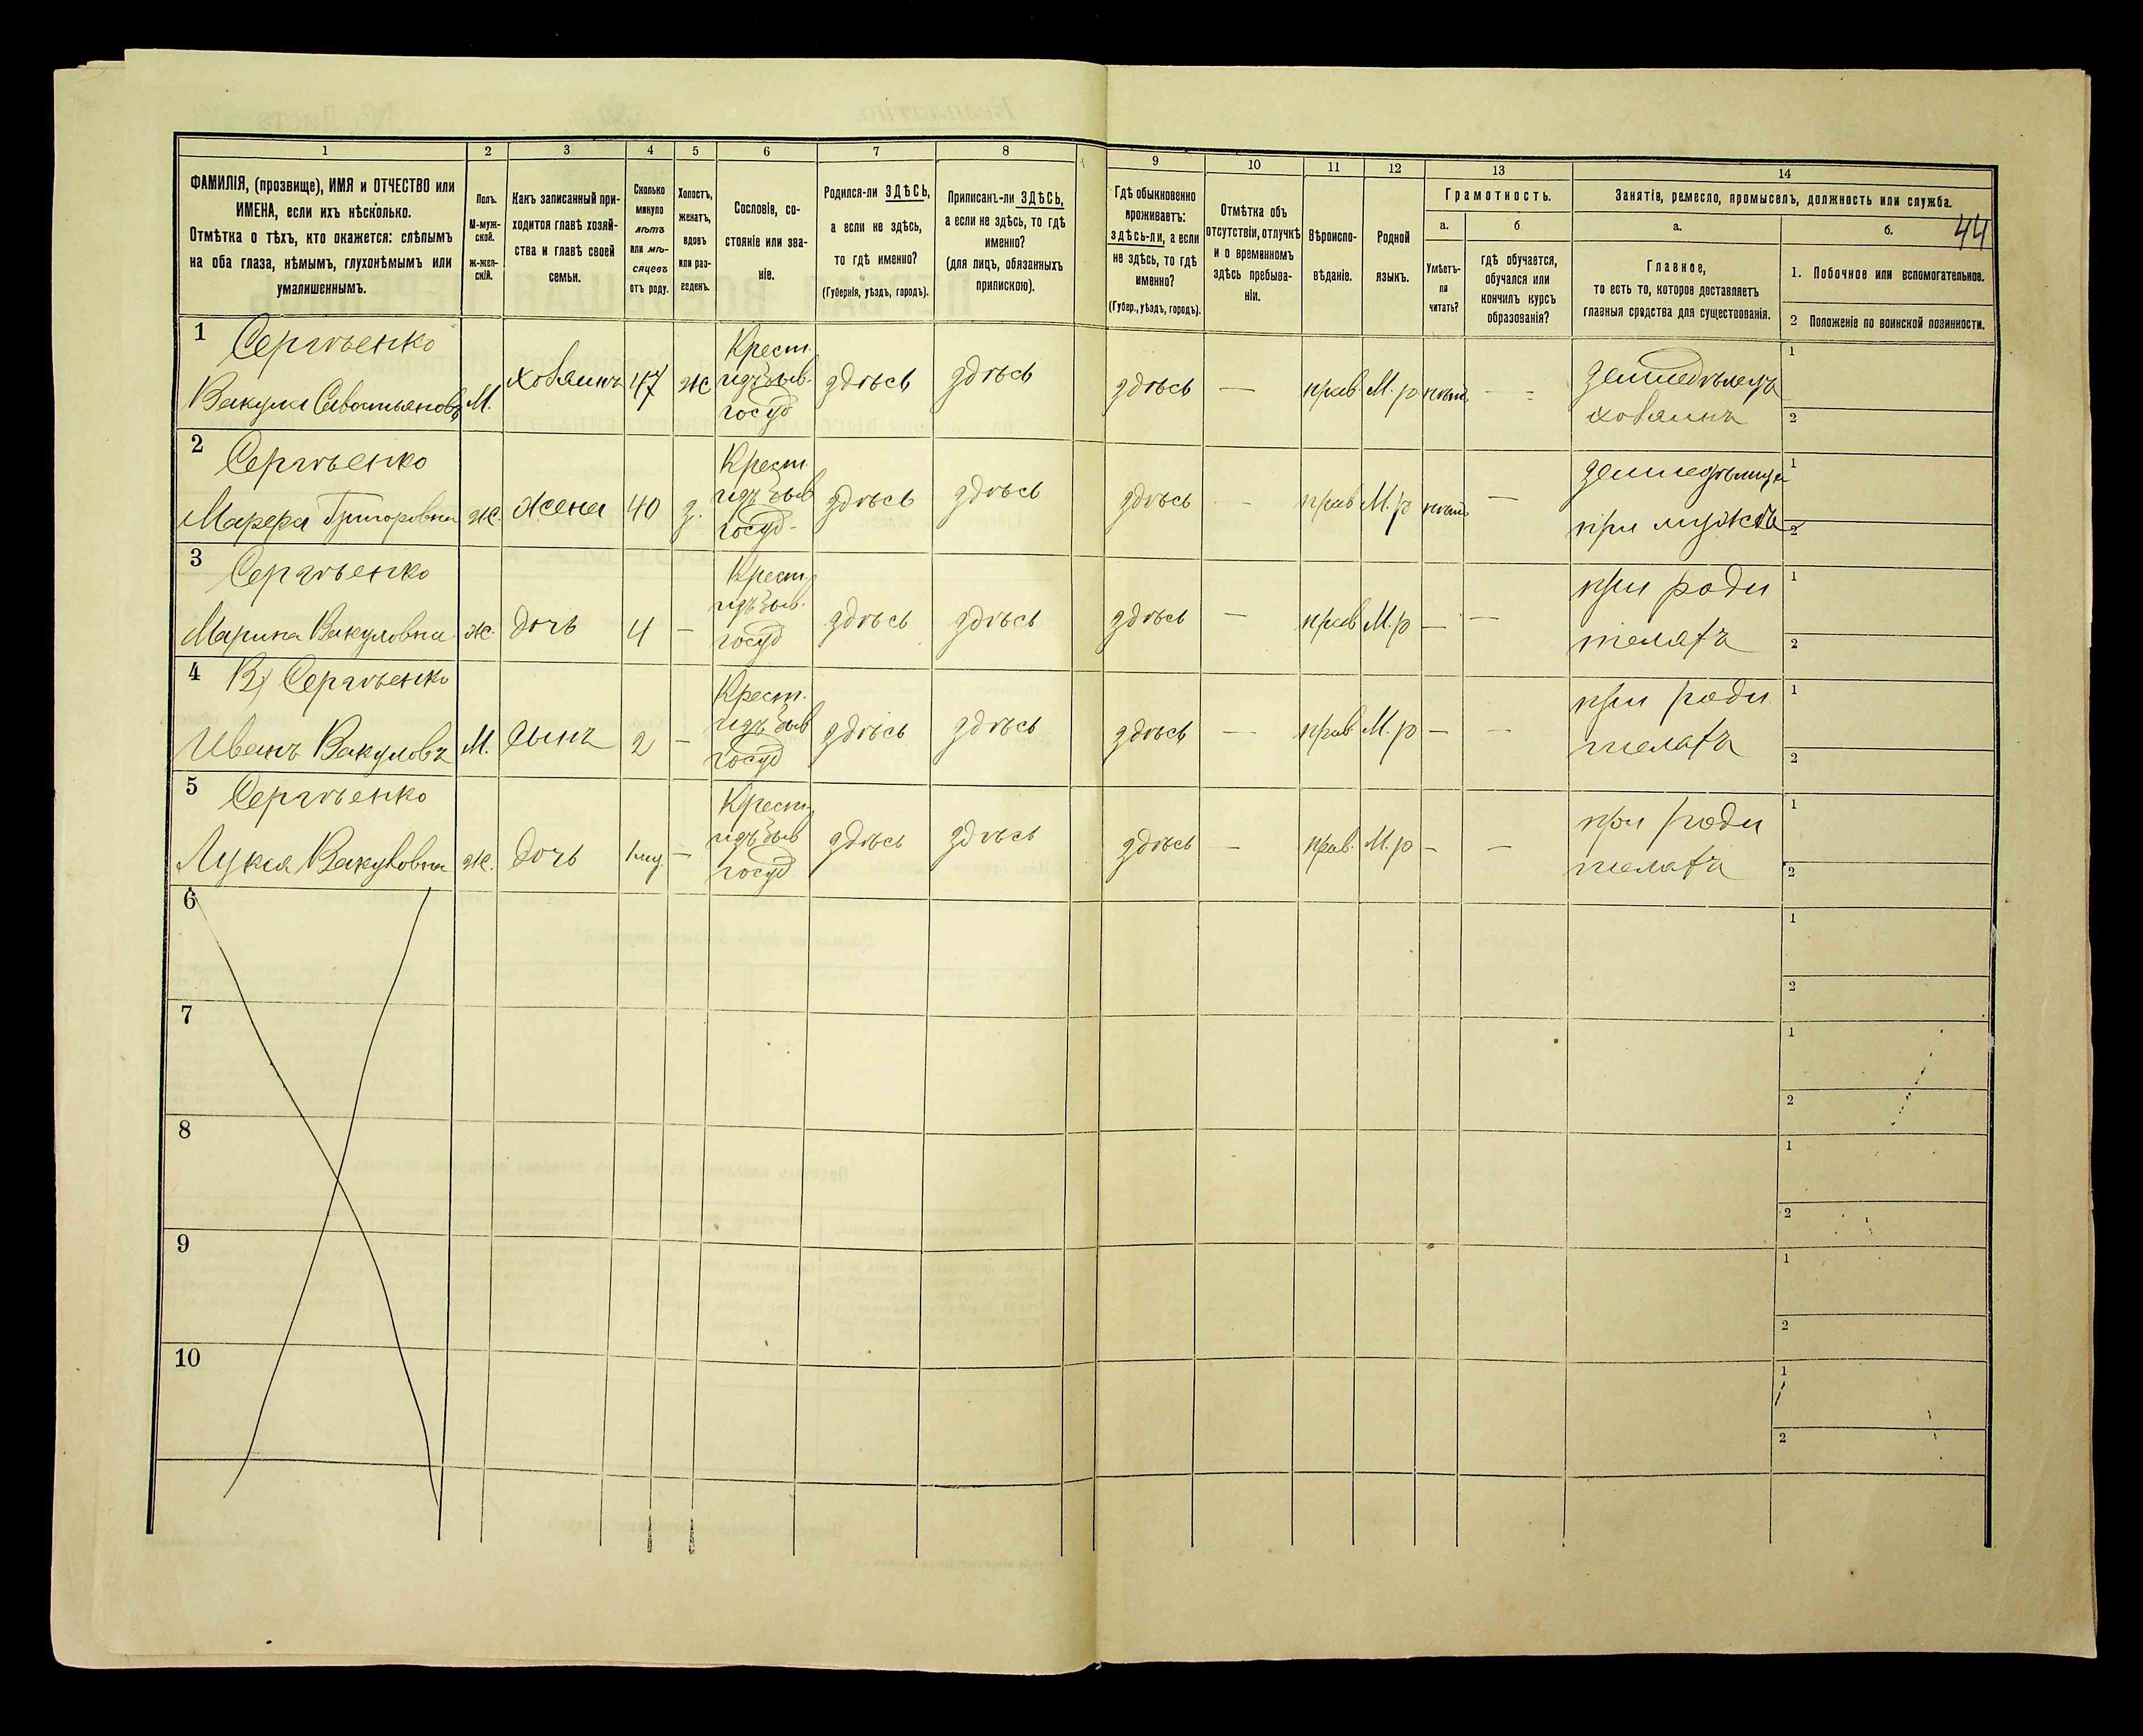 1 2 3 4 5 6 7 8 9 10 11 12 13 14
44
ФАМИЛІЯ, (прозвище), ИМЯ и ОТЧЕСТВО или
ИМЕНА, если ихъ нѣсколько.
Отмѣтка о тѣхъ, кто окажется: слѣпымъ
на оба глаза, нѣмымъ, глухонѣмымъ или
умалишеннымъ.
Полъ.
М-муж-
ской.
ж-жен-
скій.
Какъ записанный при-
ходится главѣ хозяй-
ства и главѣ своей
семьи.
Сколько
минуло
лѣтъ
или мѣ-
сяцевъ
отъ роду.
Холостъ,
женатъ,
вдовъ
или раз-
веденъ.
Сословіе, со-
стояніе или зва-
ніе.
Родился-ли ЗДѢСЬ,
а если не здѣсь,
то гдѣ именно?
(Губернія, уѣздъ, городъ).
Приписанъ-ли ЗДѢСЬ,
а если не здѣсь, то гдѣ
именно?
(для лицъ, обязанныхъ
припискою).
Гдѣ обыкновенно
проживаетъ:
здѣсь-ли, а если
не здѣсь, то гдѣ
именно?
(Губер., уѣздъ, городъ).
Отмѣтка объ
отсутствіи, отлучкѣ
и о временномъ
здѣсь пребыва-
ніи.
Вѣроиспо-
вѣданіе.
Родной
языкъ.
Грамотность.
а.
Умѣетъ-
ли
читать?
б
гдѣ обучается,
обучался или
кончилъ курсъ
образованія?
Занятіе, ремесло, промыселъ, должность или служба.
а.
Главное,
то есть то, которое доставляетъ
главныя средства для существованія.
б.
1. Побочное или вспомогательное.
2 Положеніе по воинской повинности.
1 Сергѣенко
Вакула Савостьяновъ М. хозяинъ 47 ж
Крест.
изъ быв.
госуд
здѣсь здѣсь здѣсь — прав. М. р нѣтъ — -
земледѣлецъ
хозяинъ
1
2
2 Сергѣенко
Марфа Григоровна ж. жена 40 з.
Крест
изъ быв
госуд-
здѣсь здѣсь здѣсь — прав М. р нѣтъ —
земледѣлица
при мужѣ
1
2
3 Сергѣенко
Марина Вакуловна ж. дочь 4 —
Крест
изъ быв.
госуд
здѣсь здѣсь здѣсь — прав М. р — —
при роди
телахъ
1
2
4 В) Сергѣенко
Иванъ Вакуловъ М. сынъ 2 —
Крест.
изъ быв
госуд
здѣсь здѣсь здѣсь — прав. М. р — —
при роди
телахъ
1
2
5 Сергѣенко
Лукія Вакуловна ж. дочь —
Крест
изъ быв
госуд
здѣсь здѣсь здѣсь — прав. М. р — —
при роди
телахъ
1
2
6
1
2
7
1
2
8
1
2
9
1
2
10
1
2